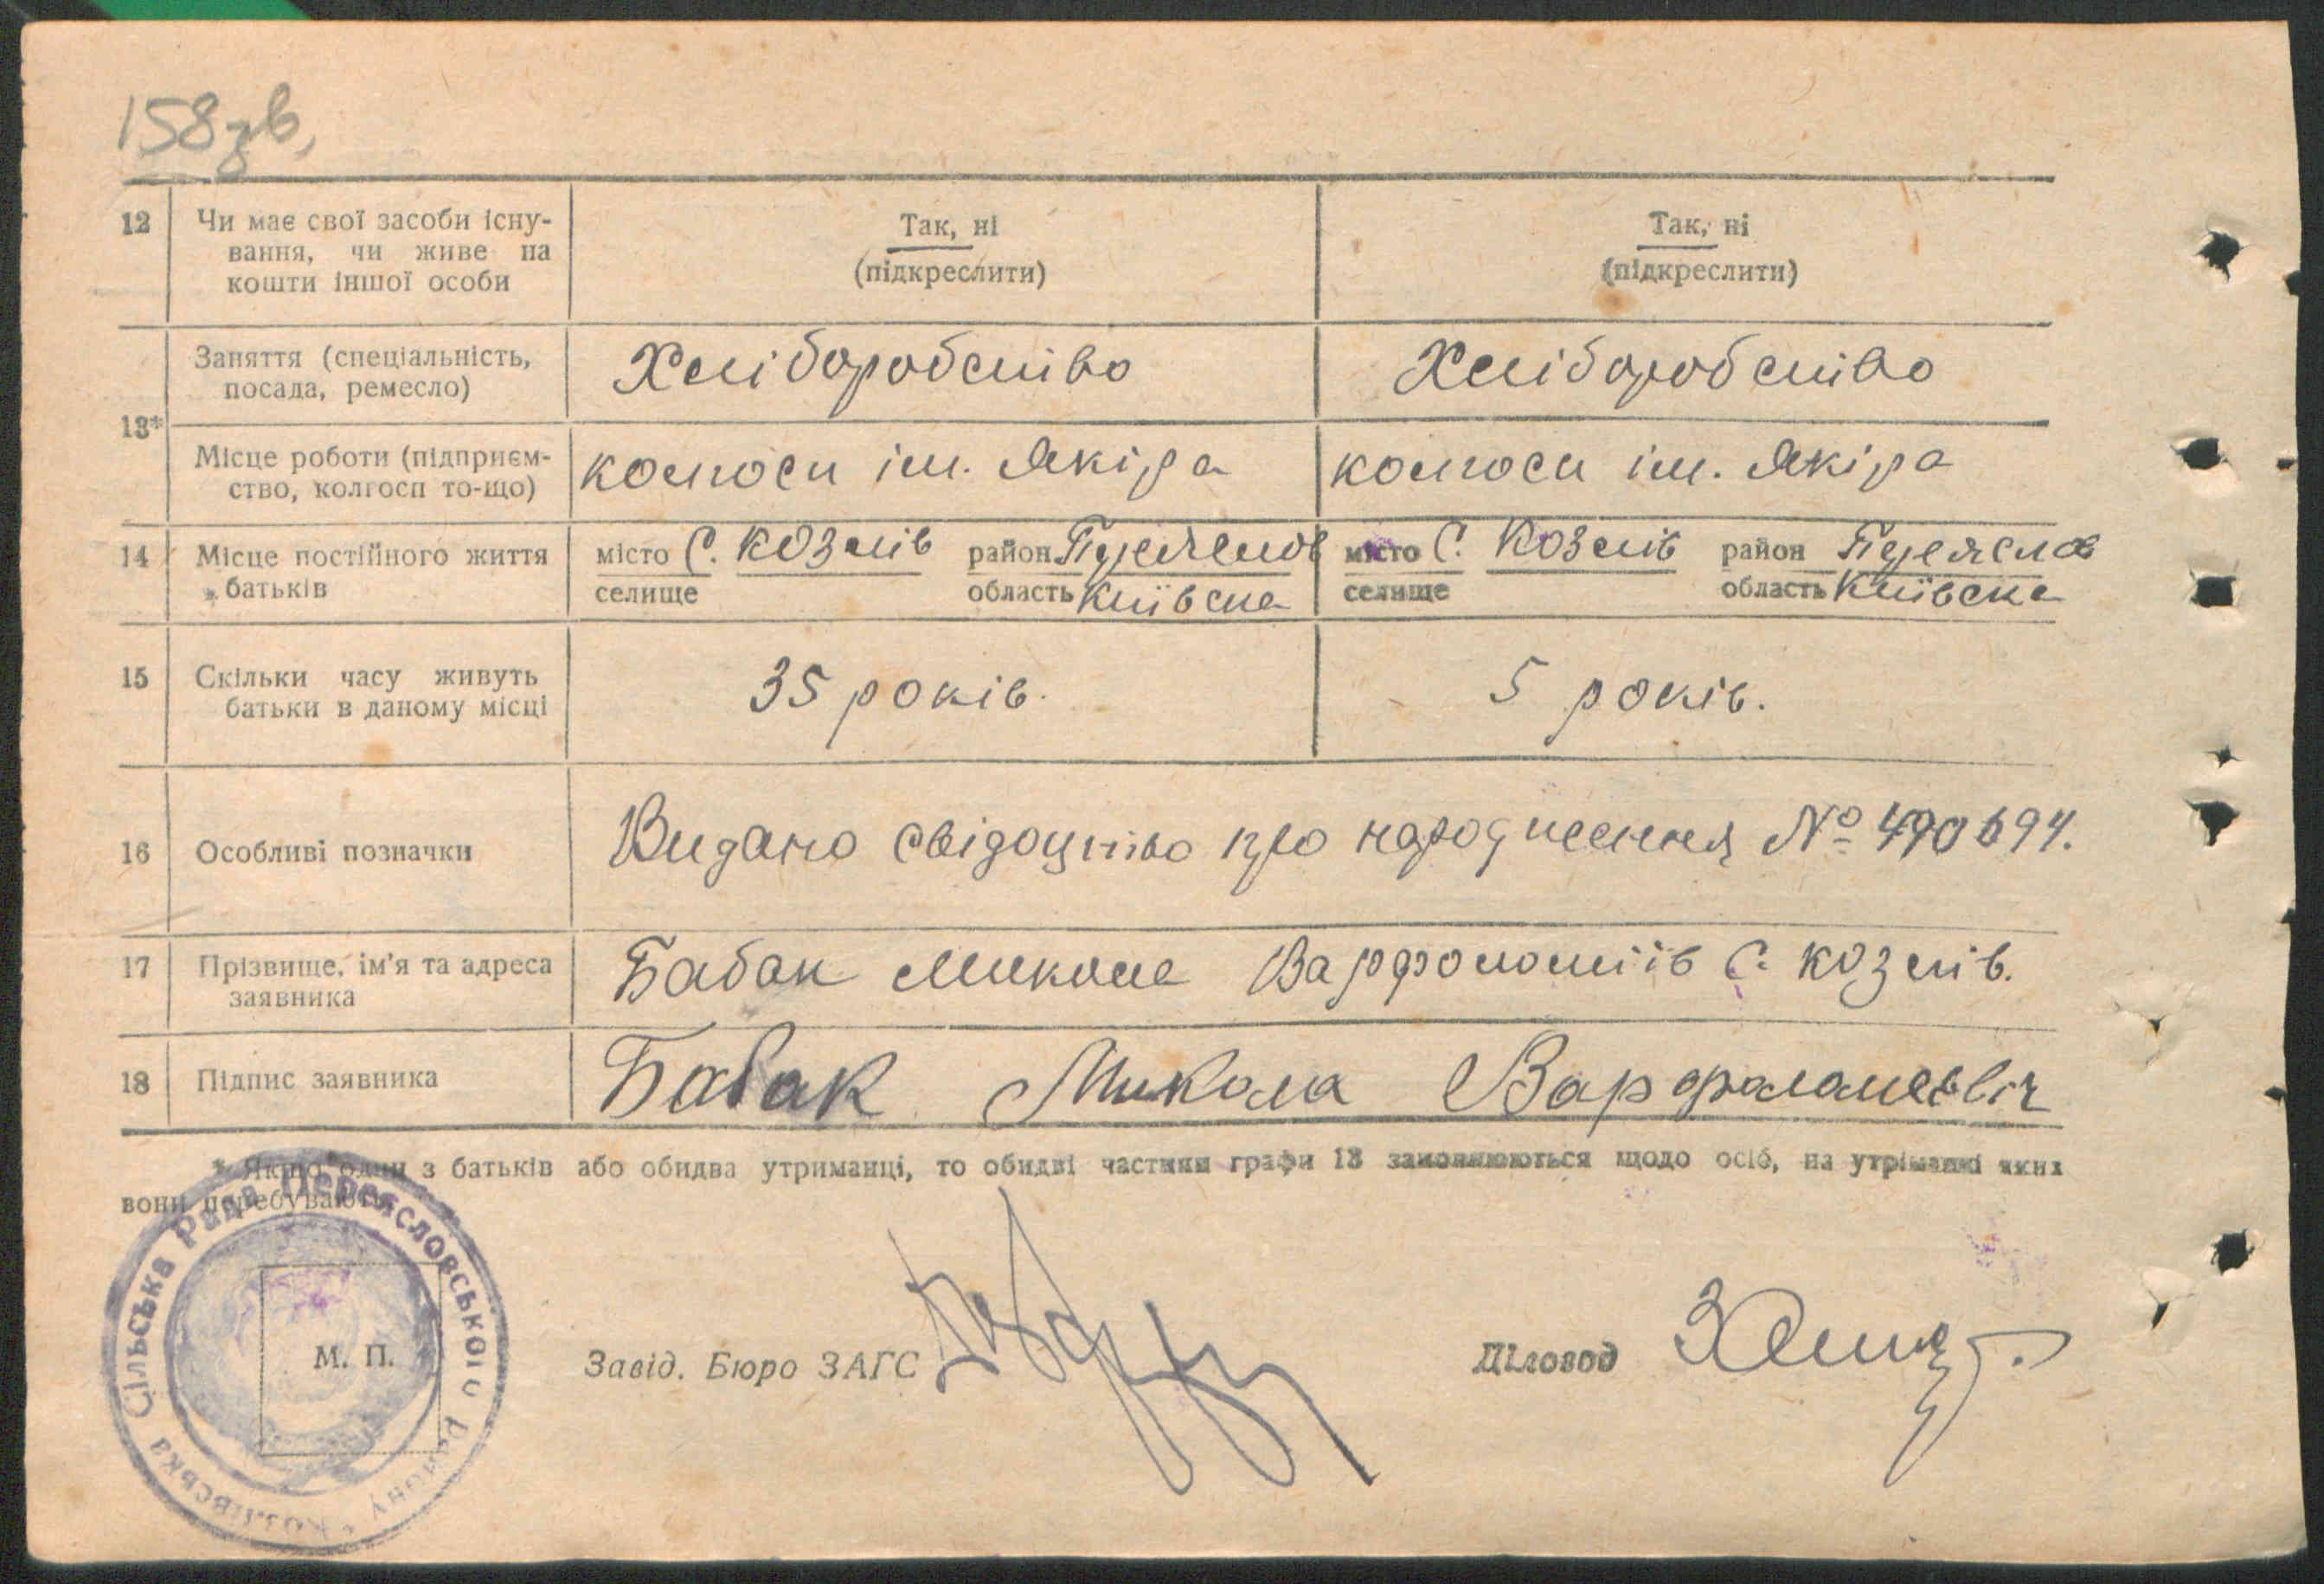 158 зв,
12 Чи має свої засоби існу-
вання, чи живе на
кошти іншої особи
Так, ні
(підкреслити)
Так, ні
(підкреслити)
13*
Заняття (спеціальність,
посада, ремесло)
Хліборобство
Хліборобство
Місце роботи (підприєм-
ство, колгосп то-що)
колгосп ім. Якіра
колгосп ім. Якіра
14 Місце постійного життя
батьків
місто С. Козлів район Переяслов
селище область Київська
місто С. Козлів район Переяслов
селище область Київська
15 Скільки часу живуть
батьки в даному місці
35 років.
5 років.
16 Особливі позначки
Видано свідоцтво про народження № 490694.
17 Прізвище, ім'я та адреса
заявника
Бабак Микола Варфоломіїв С. Козлів.
18 Підпис заявника
Бабак Микола Варфаламеевіч
* Якщо один з батьків або обидва утриманці, то обидві частини графи 13 заповнюються щодо осіб, на утріманні яких
вони перебувають.
Козлівська Сільська Рада Переясловського Району
М. П.
Завід. Бюро ЗАГС
Діловод